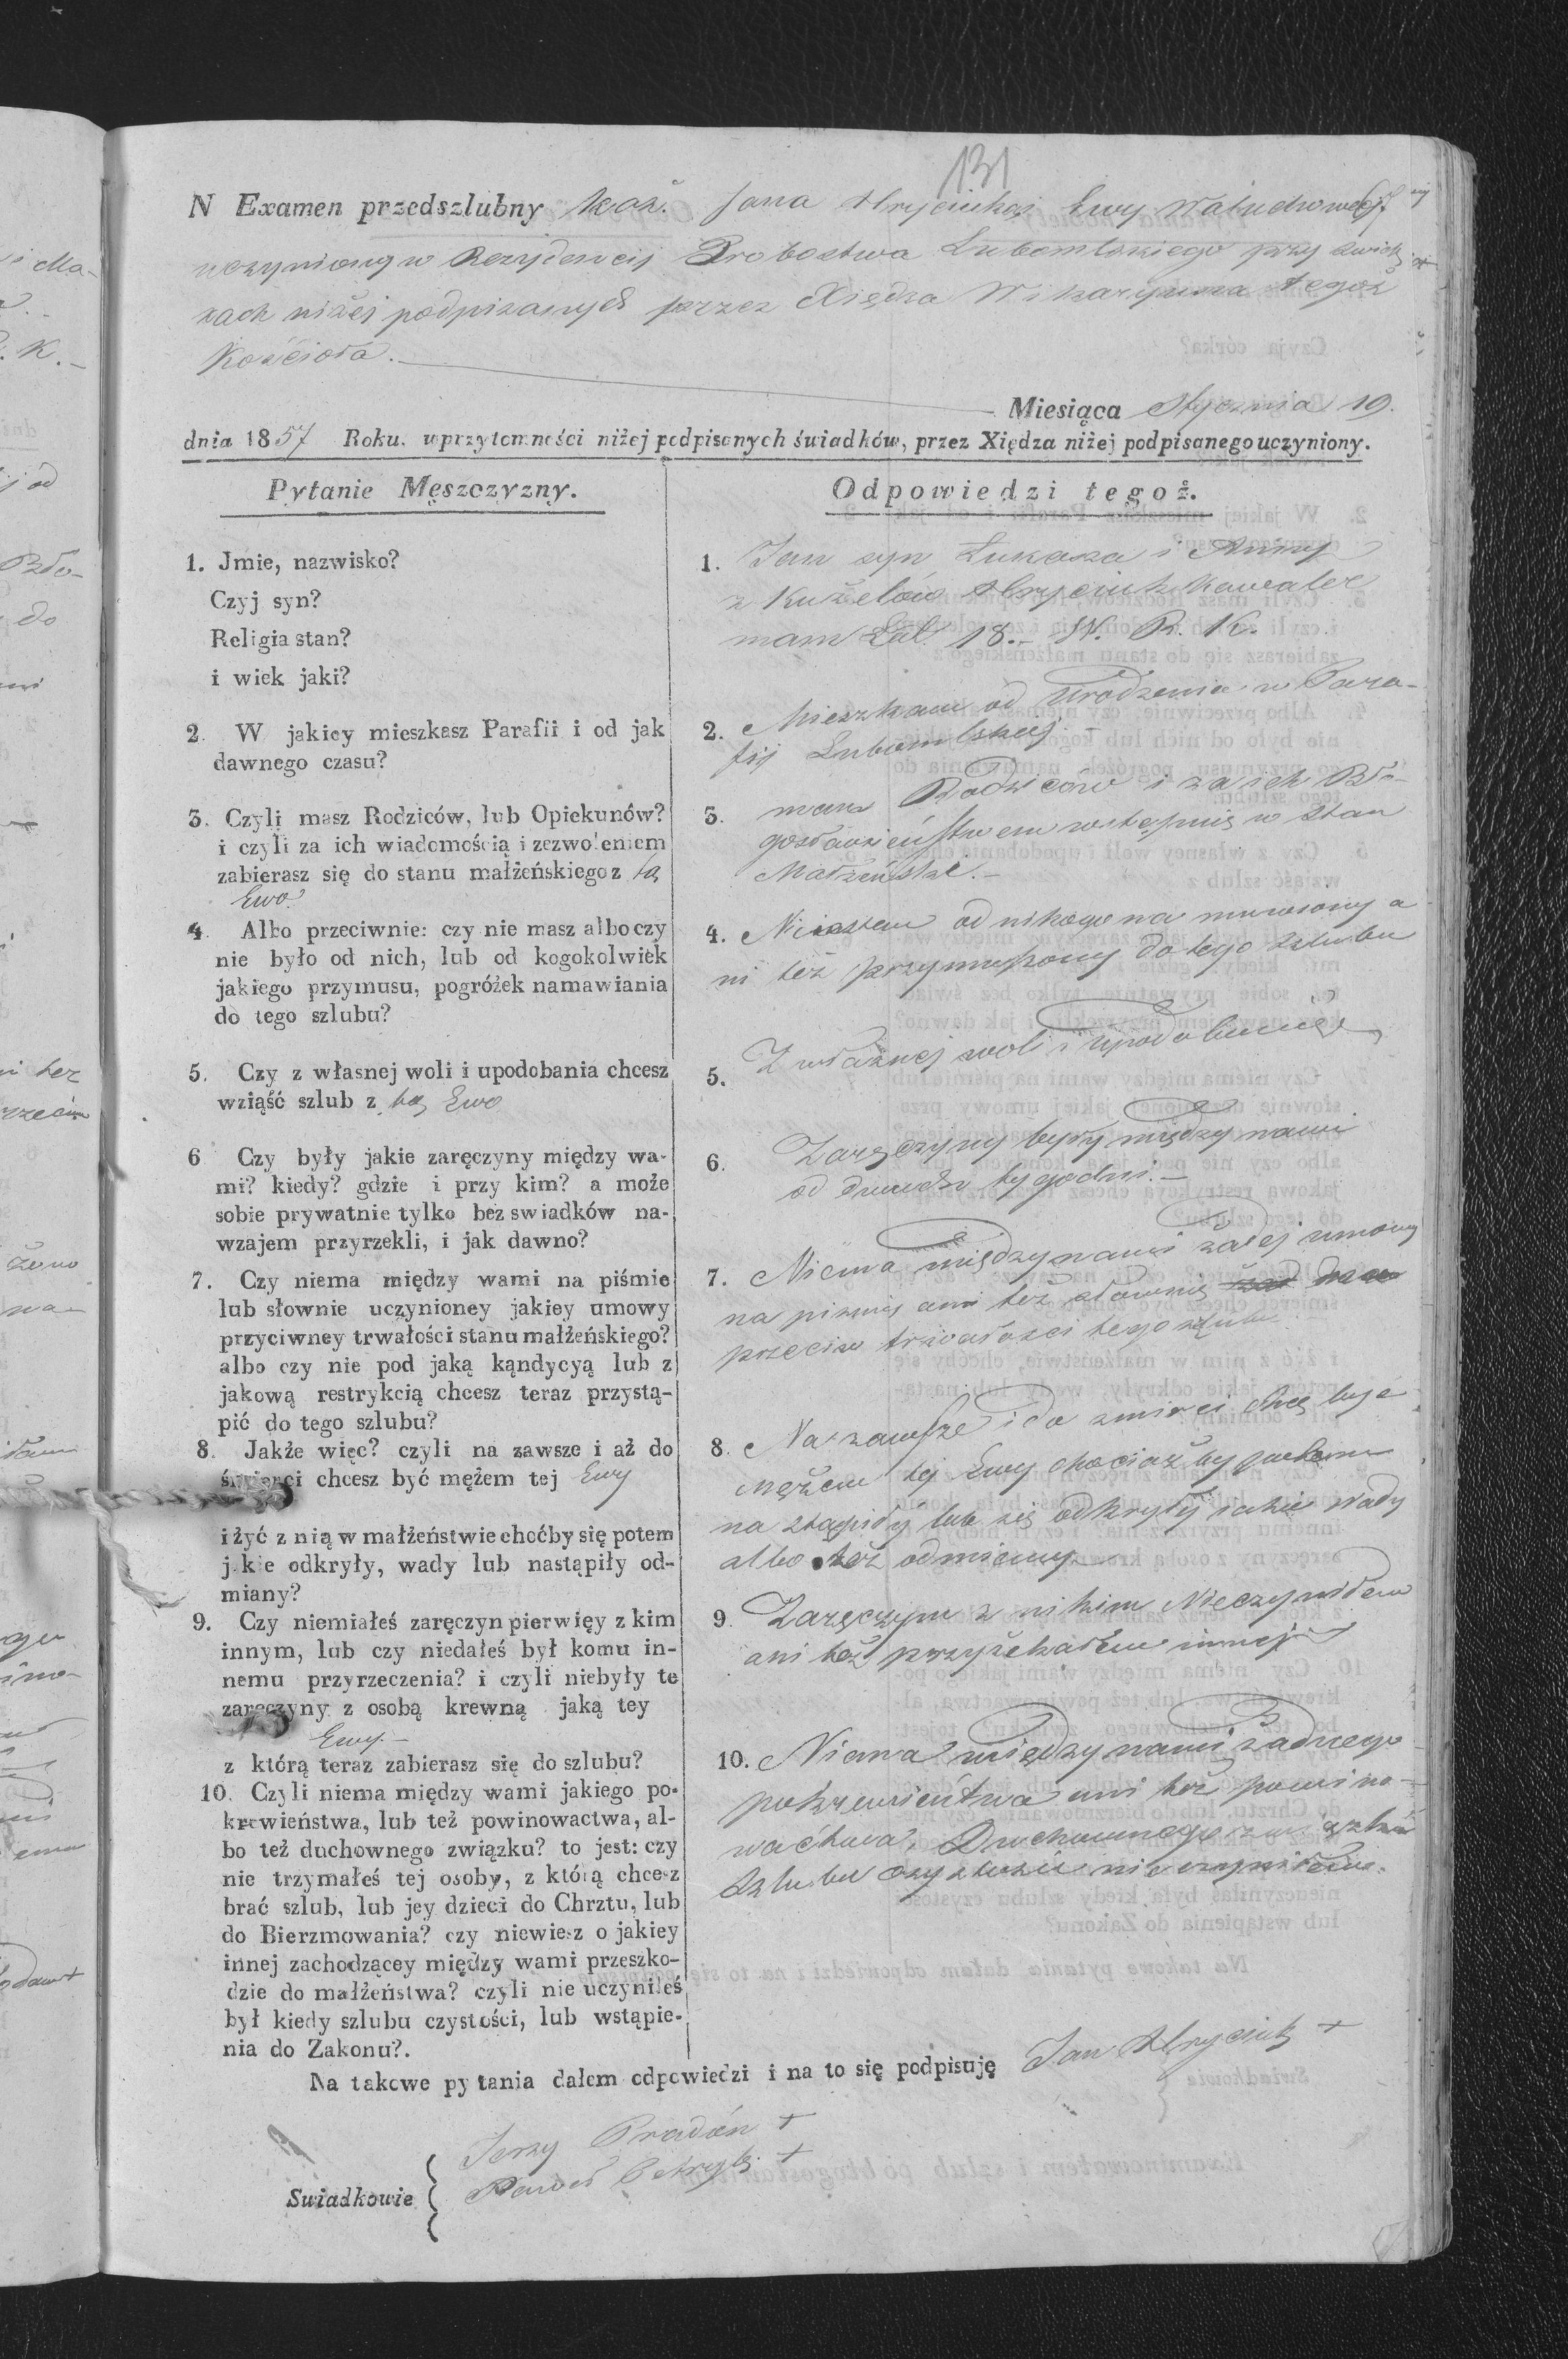 131
N Examen przedszlubny Jana Hryciuka i Ewy
uczyniony w Rezydencij Probostwa Lubomlskiego przy swiad
kach niżéj podpisanych przez Xiędza Wikaryusza tegoż
Kościoła.
Miesiąca Stycznia 19.
dnia 1857 Roku. w przytomności niżej podpisanych świadków, przez Xiędza niżej podpisanego uczyniony.
Pytanie Męszczyzny.
1. Jmie, nazwisko?
Czyj syn?
Religia stan?
i wiek jaki?
2. W jakiey mieszkasz Parafii i od jak
dawnego czasu?
3. Czyli masz Rodziców, lub Opiekunów?
i czyli za ich wiadomością i zezwoleniem
zabierasz się do stanu małżeńskiego z tą
Ewo
4. Albo przeciwnie: czy nie masz albo czy
nie było od nich, lub od kogokolwiek
jakiego przymusu, pogróżek namawiania
do tego szlubu?
5. Czy z własnej woli i upodobania chcesz
wziąść szlub z tą Ewo
6 Czy były jakie zaręczyny między wa-
mi? kiedy? gdzie i przy kim? a może
sobie prywatnie tylko bez swiadków na-
wzajem przyrzekli, i jak dawno?
7. Czy niema między wami na piśmie
lub słownie uczynioney jakiey umowy
przyciwney trwałości stanu małżeńskiego?
albo czy nie pod jaką kąndycyą lub z
jakową restrykcią chcesz teraz przystą-
pić do tego szlubu?
8. Jakże więc? czyli na zawsze i aż do
śmierci chcesz być mężem tej Ewy
i żyć z nią w małżeństwie choćby się potem
jakie odkryły, wady lub nastąpiły od-
miany?
9. Czy niemiałeś zaręczyn pierwięy z kim
innym, lub czy niedałeś był komu in-
nemu przyrzeczenia? i czyli niebyły te
zaręczyny z osobą krewną jaką tey
Ewy.-
z którą teraz zabierasz się do szlubu?
10. Czyli niema między wami jakiego po-
krewieństwa, lub też powinowactwa, al-
bo też duchownego związku? to jest: czy
nie trzymałeś tej osoby, z którą chcesz
brać szlub, lub jey dzieci do Chrztu, lub
do Bierzmowania? czy niewiesz o jakiey
innej zachodzącey między wami przeszko-
dzie do małżeństwa? czyli nie uczyniłeś
był kiedy szlubu czystości, lub wstąpie-
nia do Zakonu?.
Odpowiedzi tegoż.
1. Jan syn Łukasza i Anny
z Kuzelów Hryciuk Kawaler
mam Lat 18.- W. R. K.
2. Mieszkam od Urodzenia w Para-
fij Lubomlskiej.-
3. mam Rodziców i za ich Bło-
gosławieństwem wstępuię w stan
Małżeński.-
4. Niiestem od nikogo na muwiony a
ni też przymuszony do tego szlubu
5. Z własnej woli i upodobania
6. Zaręczyny były między nami
od dwuch tygodni.-
7. Niema między nami umowy
na pismię ani też słownię
przeciw trwałości tego szlubu
8. Na zawsze i do smierci chcę być
mężem tej Ewy chociaż by potem
na stąpiły lub się odkryły iakie Wady
albo też odmiany
9. Zaręczyn z nikim Nieczyniłem
ani też przyżekałem innej
10. Niema między nami żadnego
pokrewieństwa ani też powino-
waćtwa, Duchownego związku
szlubu czystości nie czyniłem.
Na takowe pytania dałem odpowiedzi i na to się podpisuję Jan Hryciuk +
Jerzy +
Paweł Petryk +
Swiadkowie